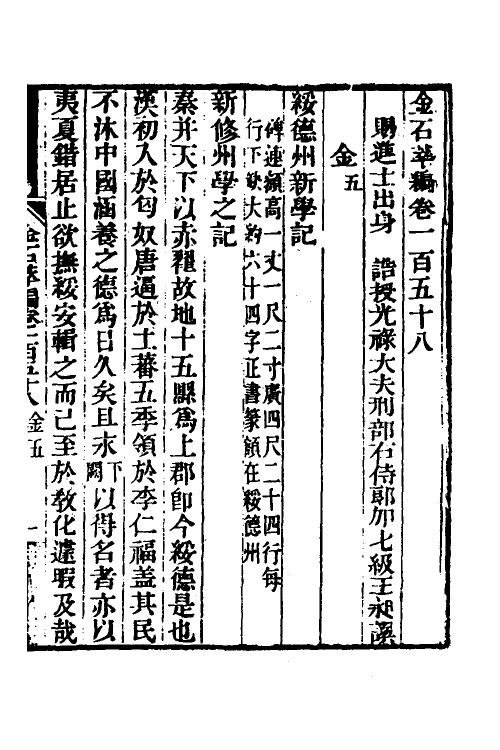 金石萃編卷一百五十八
賜進士出身　誥授光祿大夫刑部右侍郎加七級王昶譔
金五
綏德州新學記
碑連額高一丈一尺二寸廣四尺二十四行每
行下缺大約六十四字正書篆額在綏德州
新修州學之記
秦并天下以赤翟故地十五縣爲上郡卽今綏德是也
漢初入於匈奴唐逼於土蕃五季領於李仁福蓋其民
不沐中國涵養之德爲日久矣且永下闕以得名者亦以
夷夏錯居止欲撫綏安輯之而已至於敎化遑暇及哉
金石萃編卷一百五十八 金五 一